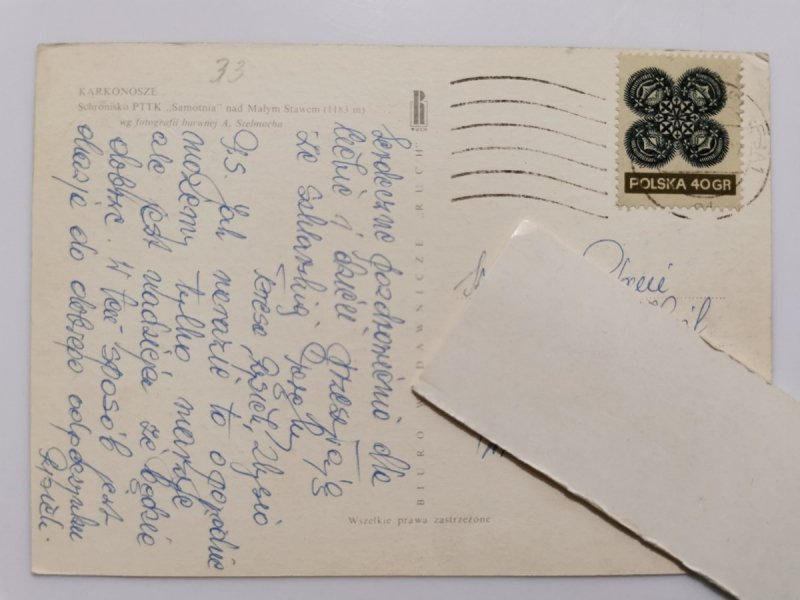 33
KARKONOSZE
Schronisko PTTK „Samotnia" nad Małym Stawem (1183 m)
wg fotografii barwnej A. Stelmacha
Serdeczne pozdrowienia dla
i dzieci przesyłają
ze Szklarskiej Poręby
Zbysio
P.S. Jak narazie to o pogodzie
możemy tylko marzyć
ale jest nadzieja że będzie
dobrze. W ten sposób jest
okazja do dobrego odpoczynku
RUCH
BIURO WYDAWNICZE „RUCH"
Wszelkie prawa zastrzeżone
POLSKA 40 GR